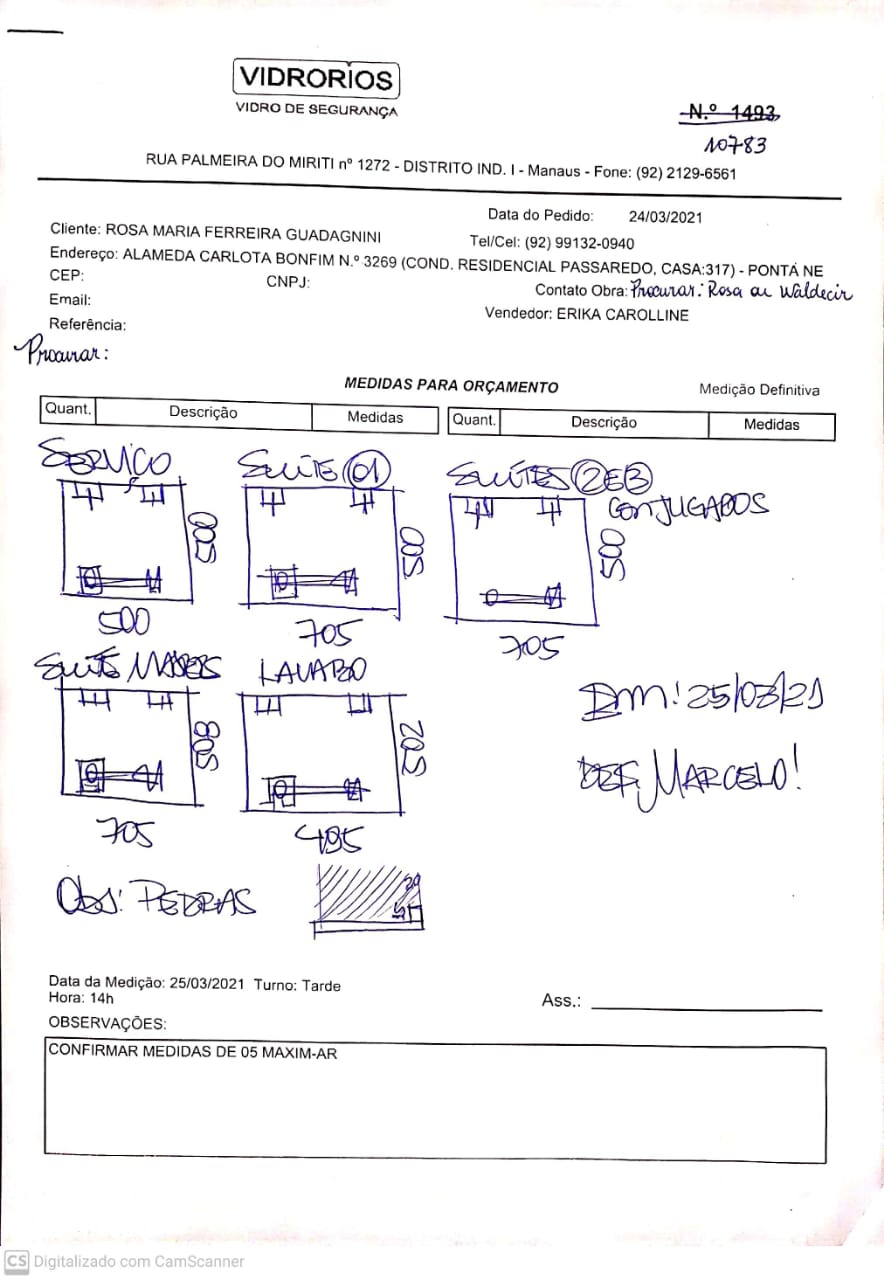 VIDRORIOS
VIDRO DE SEGURANÇA
N.º 1493
10783
RUA PALMEIRA DO MIRITI nº 1272 - DISTRITO IND. I - Manaus - Fone: (92) 2129-6561
Data do Pedido: 24/03/2021
Cliente: ROSA MARIA FERREIRA GUADAGNINI
Tel/Cel: (92) 99132-0940
Endereço: ALAMEDA CARLOTA BONFIM N.º 3269 (COND. RESIDENCIAL PASSAREDO, CASA:317) - PONTA NE
CEP: CNPJ:
Contato Obra: Procurar: Rosa ou Waldecir
Email:
Vendedor: ERIKA CAROLLINE
Referência:
Procurar:
MEDIDAS PARA ORÇAMENTO Medição Definitiva
Quant. Descrição Medidas Quant. Descrição Medidas
SERVIÇO SUÍTE 01 SUÍTES 2 E 3
CONJUGADOS
500 500 500
500 705 705
SUÍTE MASTER LAVABO
DM: 25/03/21
508 502
DEF. MARCELO!
705 495
Obs: PEDRAS
Data da Medição: 25/03/2021 Turno: Tarde
Hora: 14h
Ass.:
OBSERVAÇÕES:
CONFIRMAR MEDIDAS DE 05 MAXIM-AR
CS Digitalizado com CamScanner